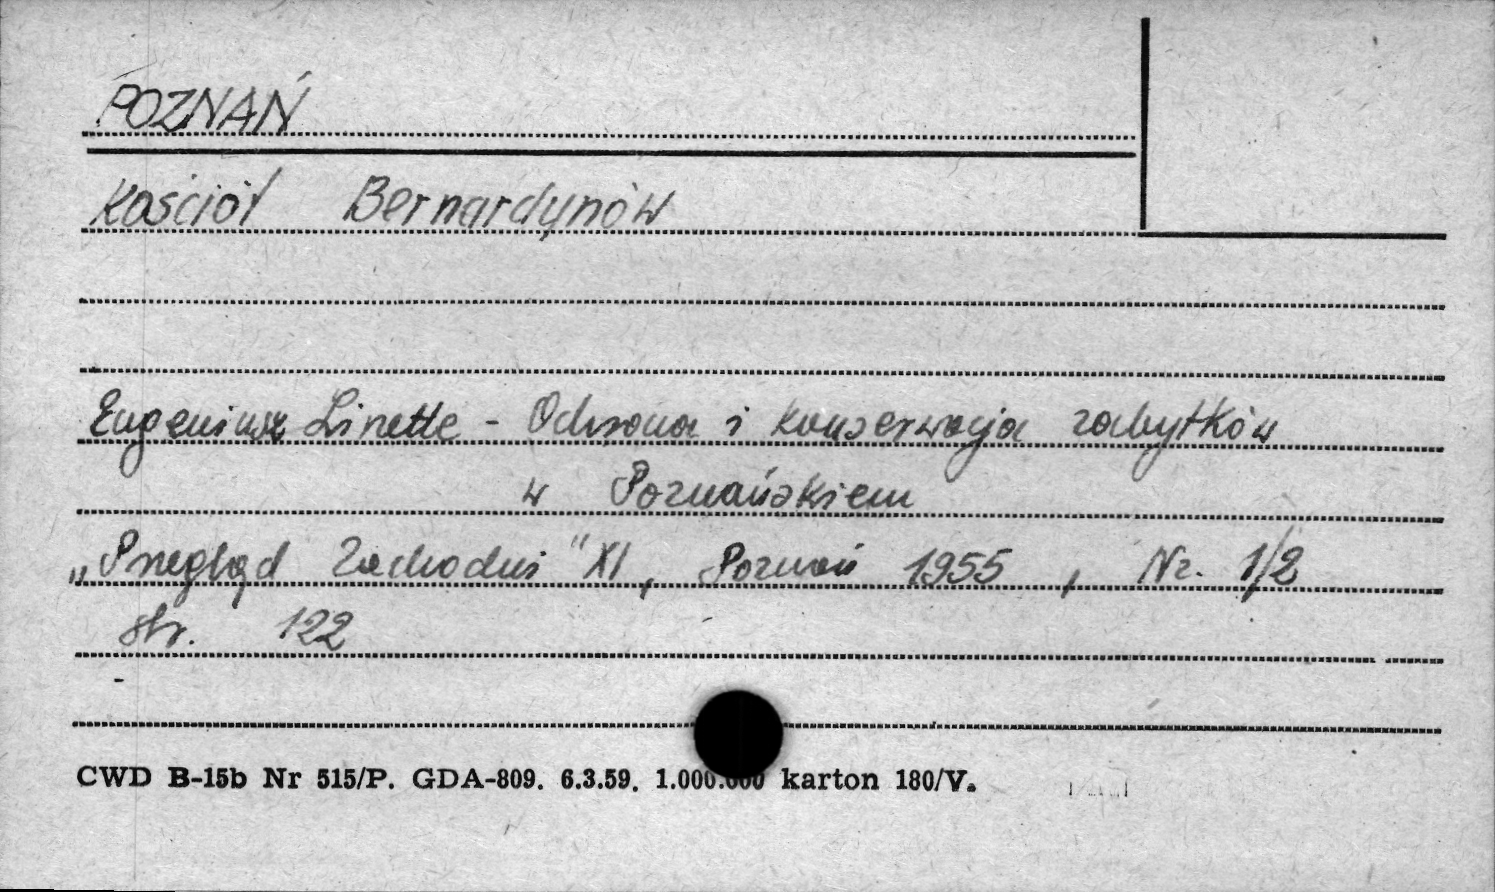 POZNAŃ
Kościół Bernardynów
Eugeniusz Linette - Ochrona i konserwacja zabytków
w Poznańskiem
„Przegląd Zachodni" XI, Poznań 1955, Nr. 1/2
str. 122
CWD B-15b Nr 515/P. GDA-809. 6.3.59. 1.000.000 karton 180/V.